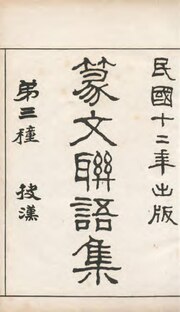 民國十二年出版
篆文聯語集
第三種 技漢